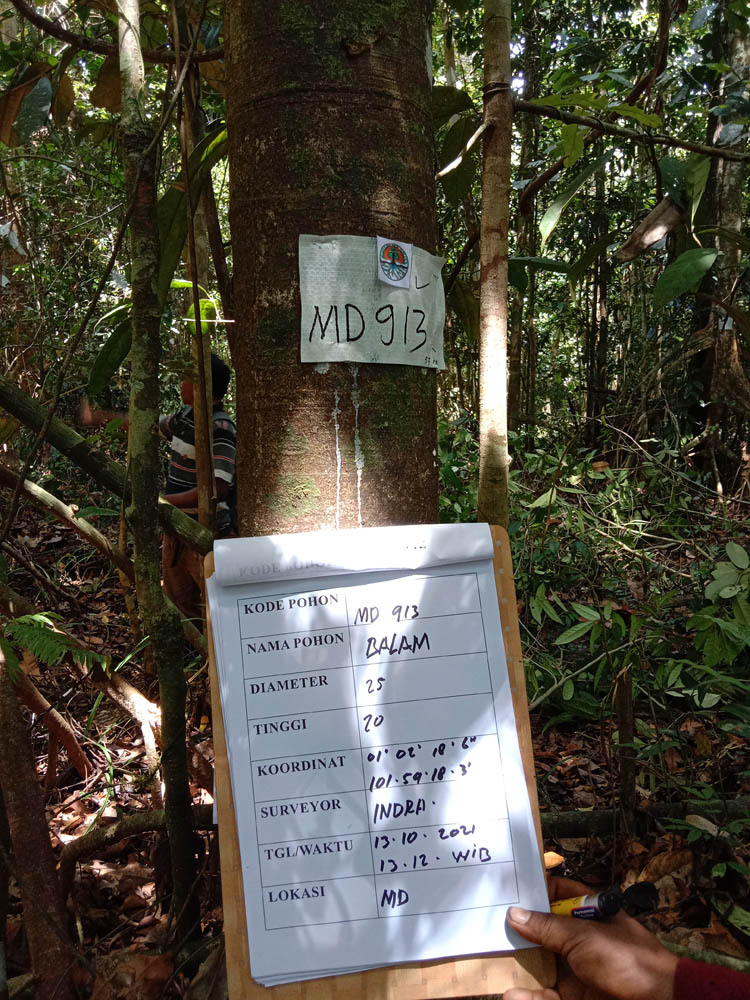 MD 913
KODE POHON MD 913
NAMA POHON BALAM
DIAMETER 25
TINGGI 20
KOORDINAT 01° 02' 18.6"
101.59.18.3'
SURVEYOR INDRA.
TGL/WAKTU 13.10.2021
13.12. WIB
LOKASI MD